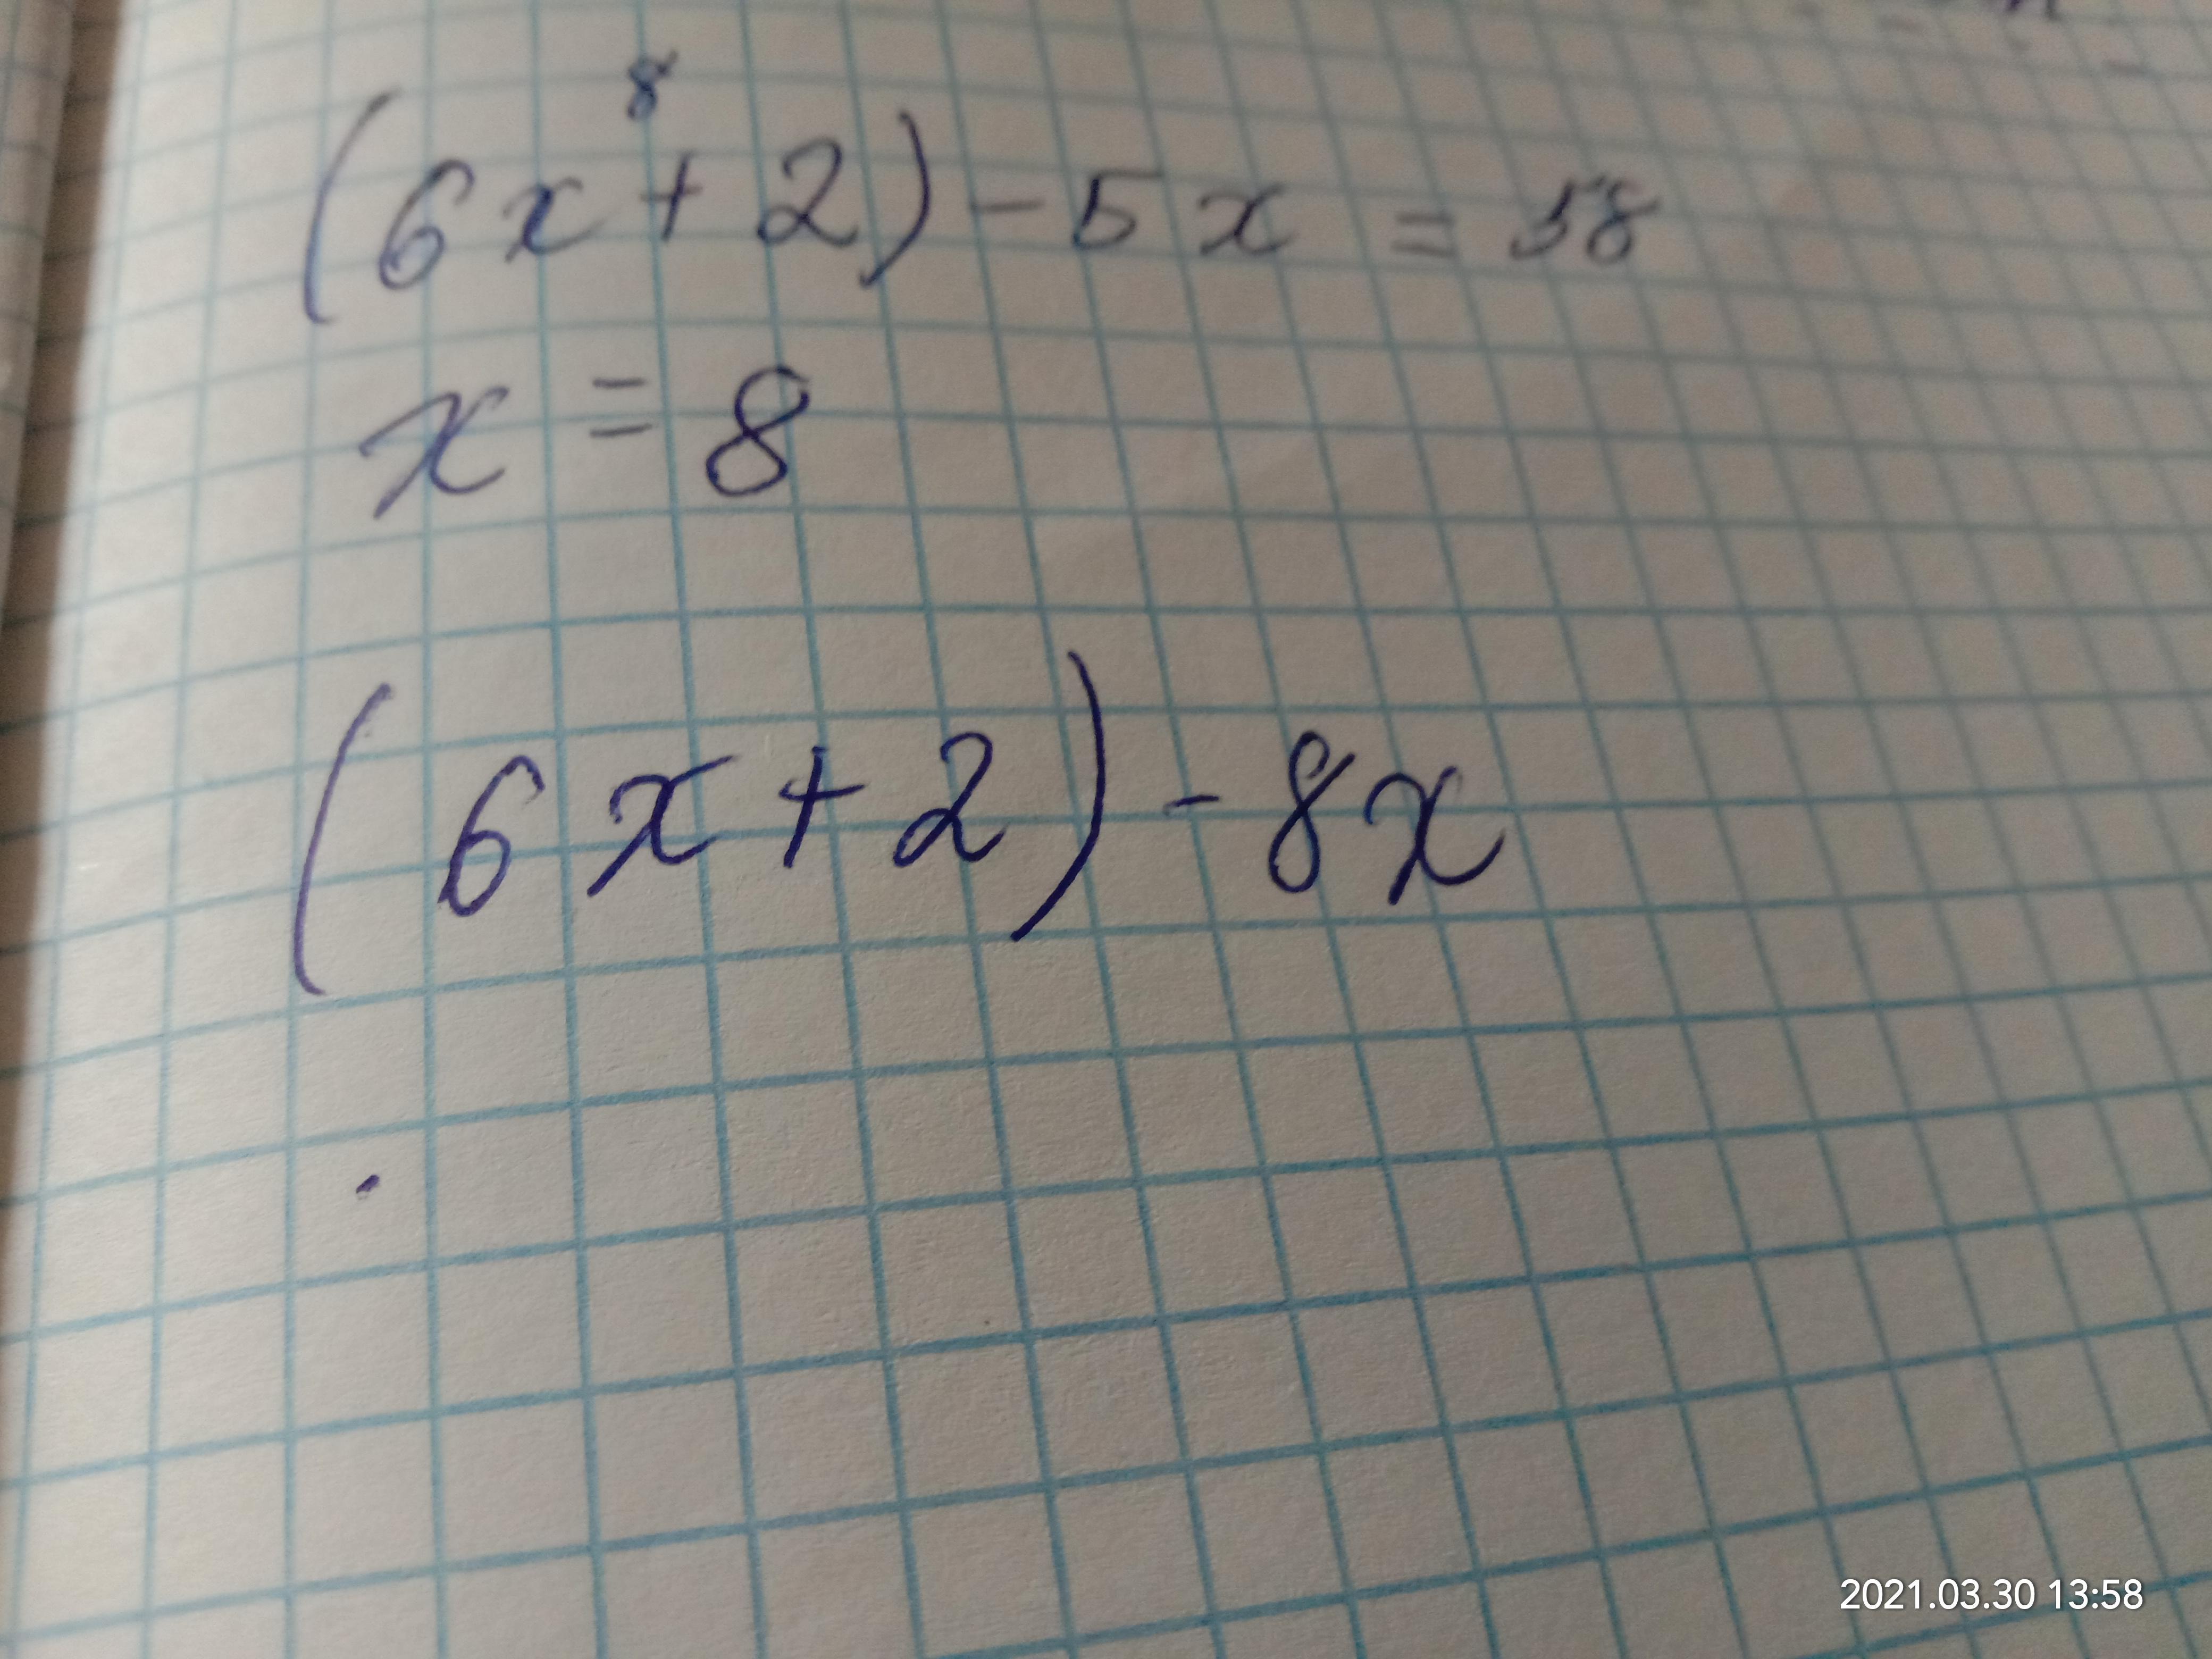 8
(6x + 2) - 5x = 58
x = 8
(6x + 2) - 8x
2021.03.30 13:58